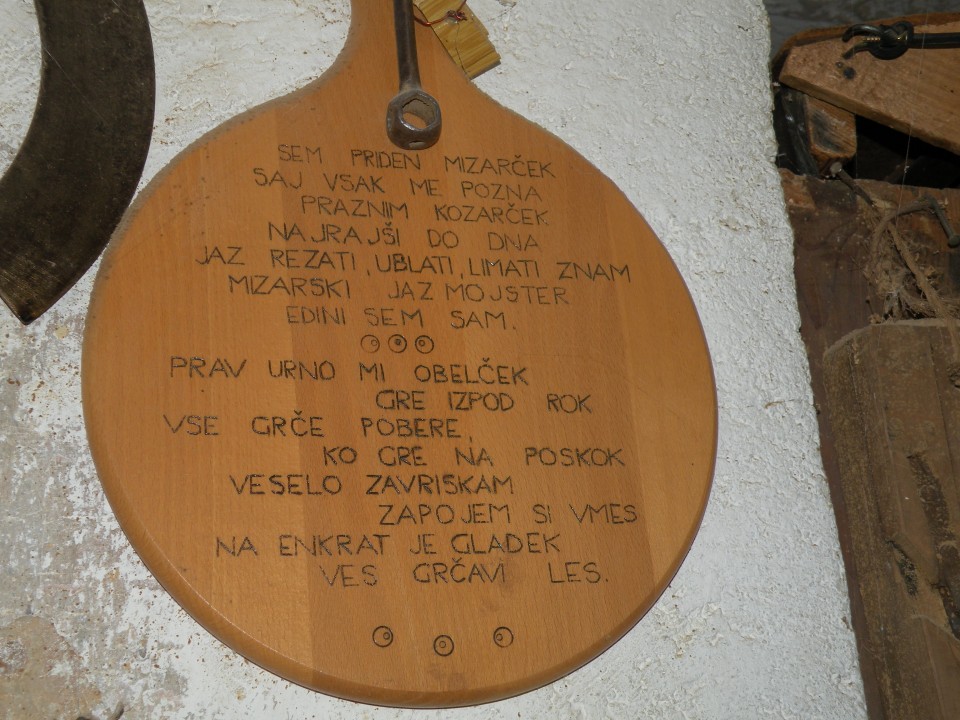 SEM PRIDEN MIZARČEK
SAJ VSAK ME POZNA
PRAZNIM KOZARČEK
NAJRAJŠI DO DNA
JAZ REZATI, UBLATI, LIMATI ZNAM
MIZARSKI JAZ MOJSTER
EDINI SEM SAM.
PRAV URNO MI OBELČEK
GRE IZPOD ROK
VSE GRČE POBERE,
KO GRE NA POSKOK
VESELO ZAVRISKAM
ZAPOJEM SI VMES
NA ENKRAT JE GLADEK
VES GRČAVI LES.